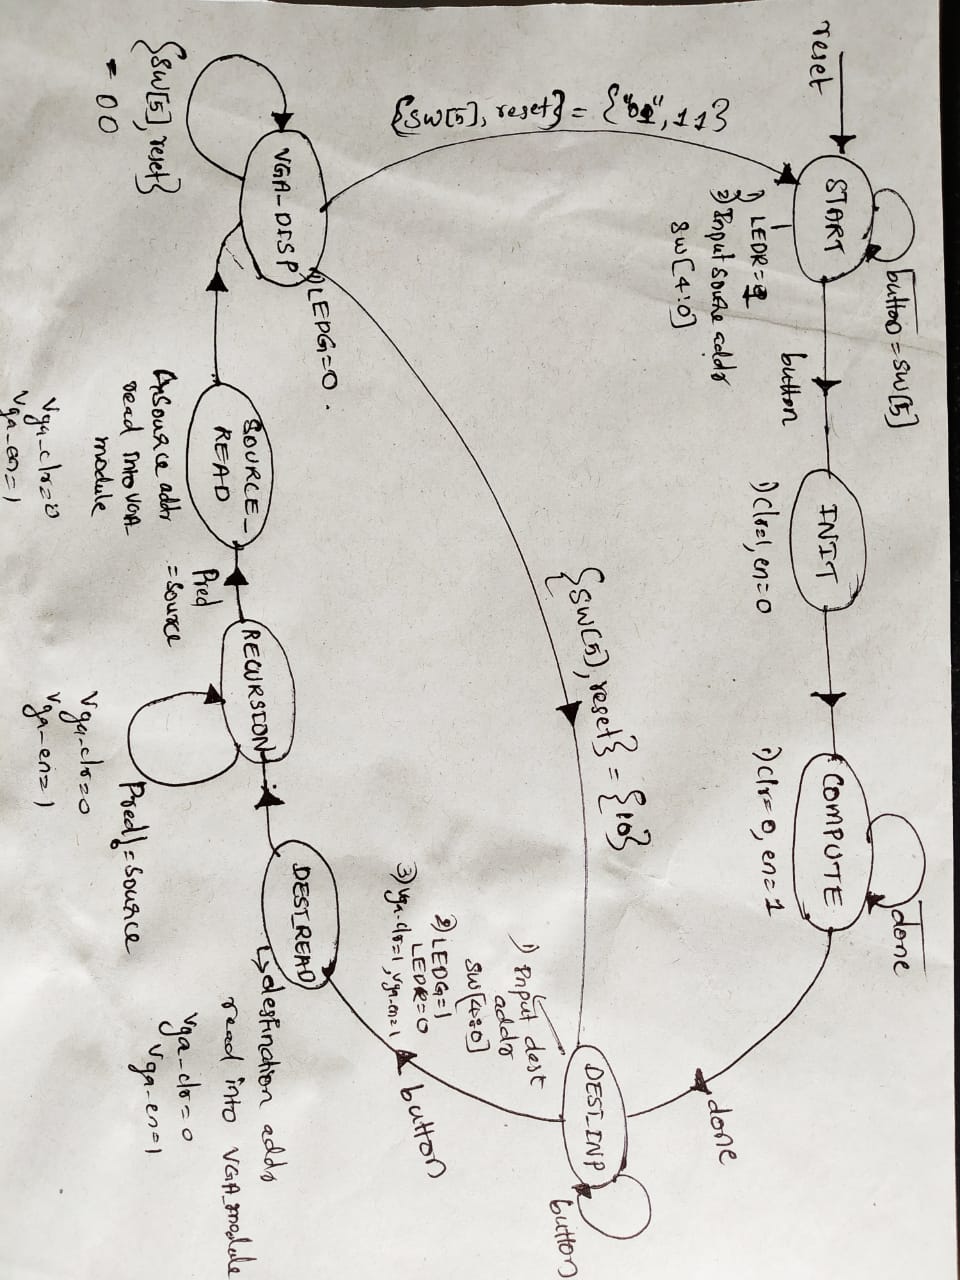 reset
START
button = sw[5]
1) LEDR=1
2) Input source addr
sw[4:0]
button
INIT
1) clr=1, en=0
COMPUTE
1) clr=0, en=1
done
done
DEST_INP
button
1) Input dest
addr
sw[4:0]
2) LEDG=1
LEDR=0
3) vga-clr=1, vga-en=1
button
DEST_READ
↳ destination addr
read into VGA_module
vga-clr=0
vga-en=1
RECURSION
Pred != source
vga-clr=0
vga-en=1
Pred
= source
SOURCE_
READ
source addr
read into VGA
module
vga-clr=0
vga-en=1
VGA_DISP
1) LEDG=0.
{sw[5], reset}
= 00
{sw[5], reset} = {"01", 11}
{sw[5], reset} = {10}